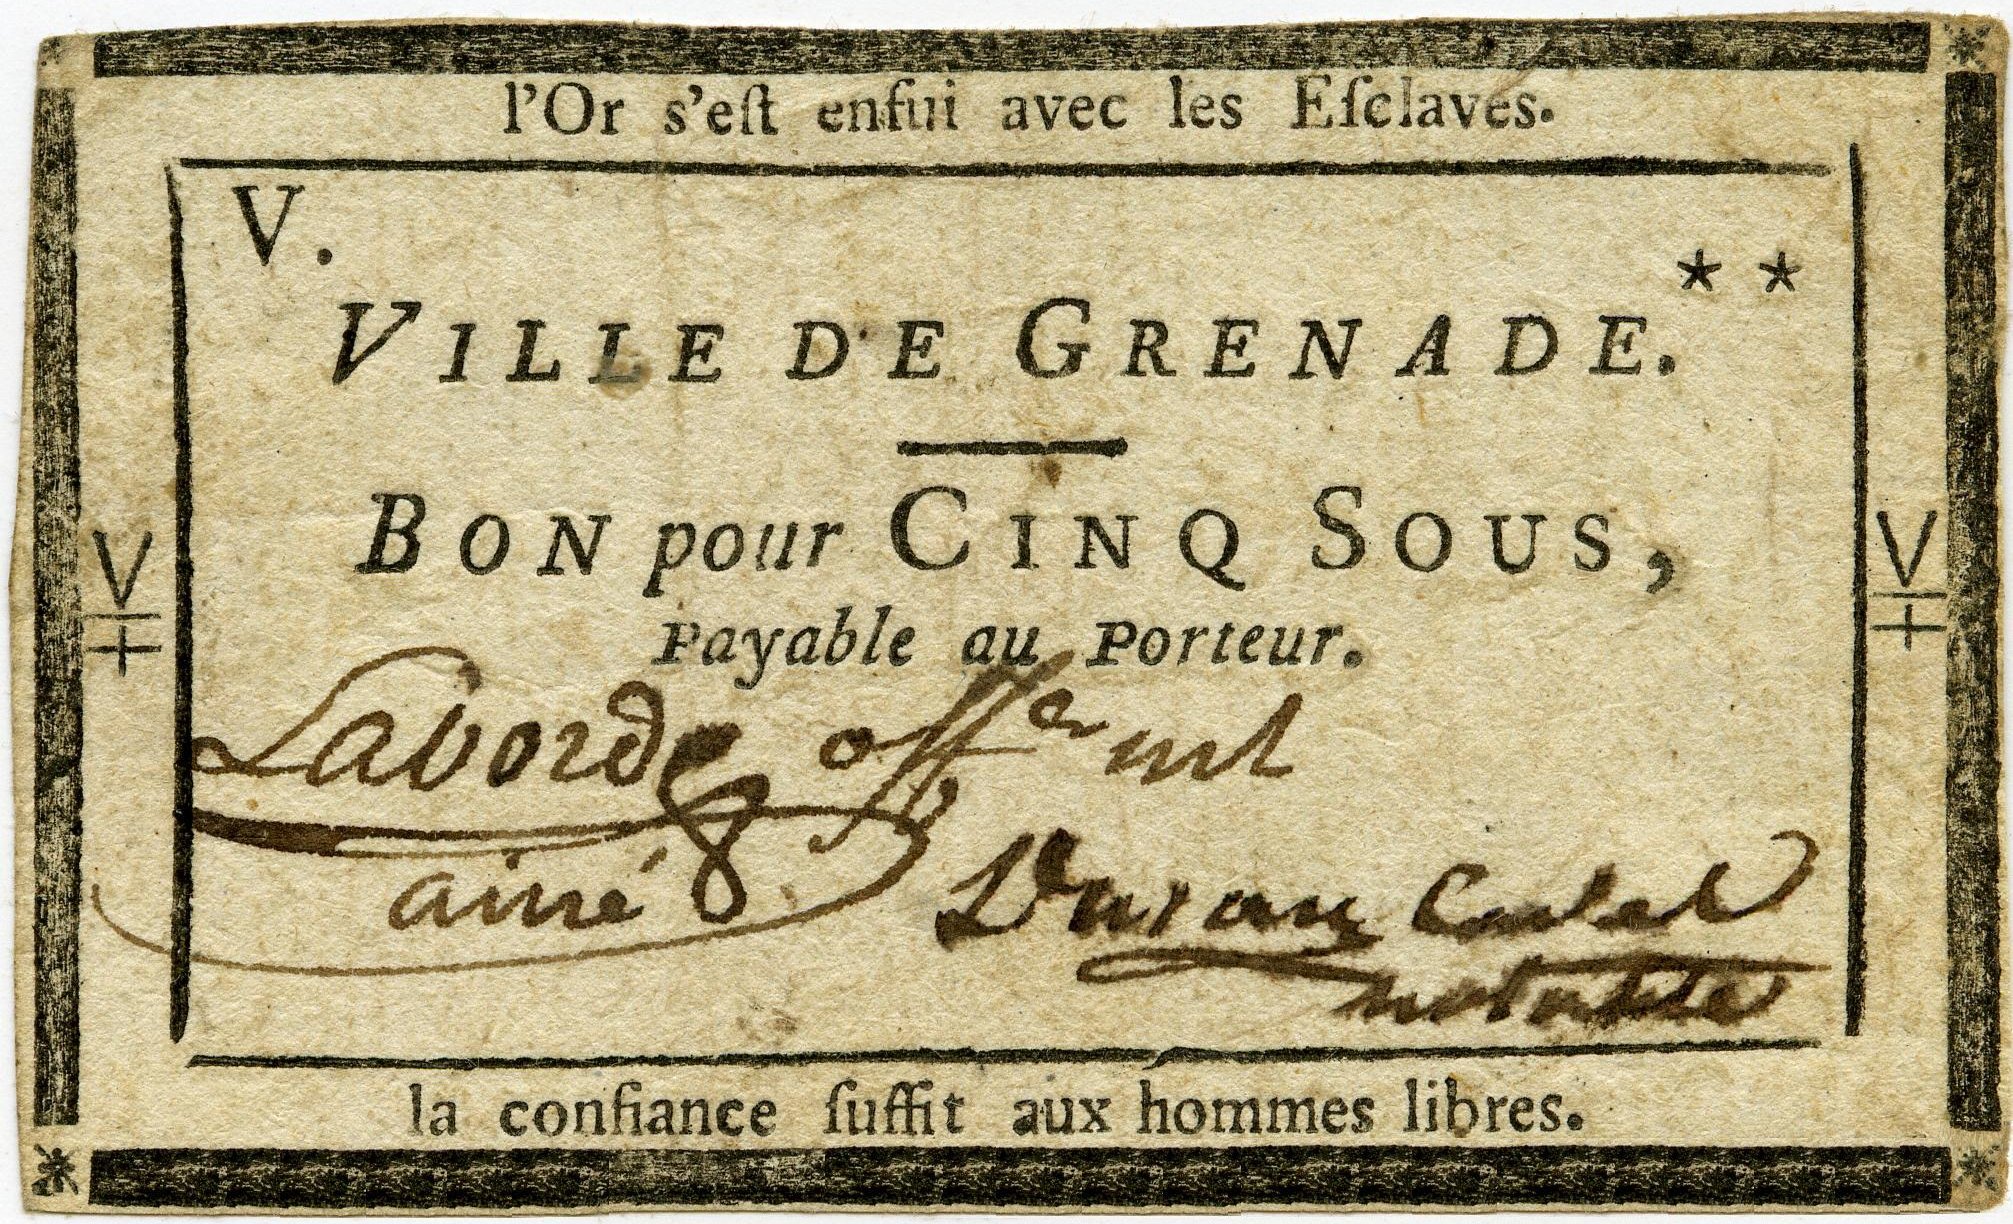 l'Or s'eſt enfui avec les Eſclaves.
V.
* *
VILLE DE GRENADE.
BON pour CINQ SOUS,
Payable au Porteur.
V
V
Laborde offer ml
ainé
Duran
notable
la confiance ſuffit aux hommes libres.